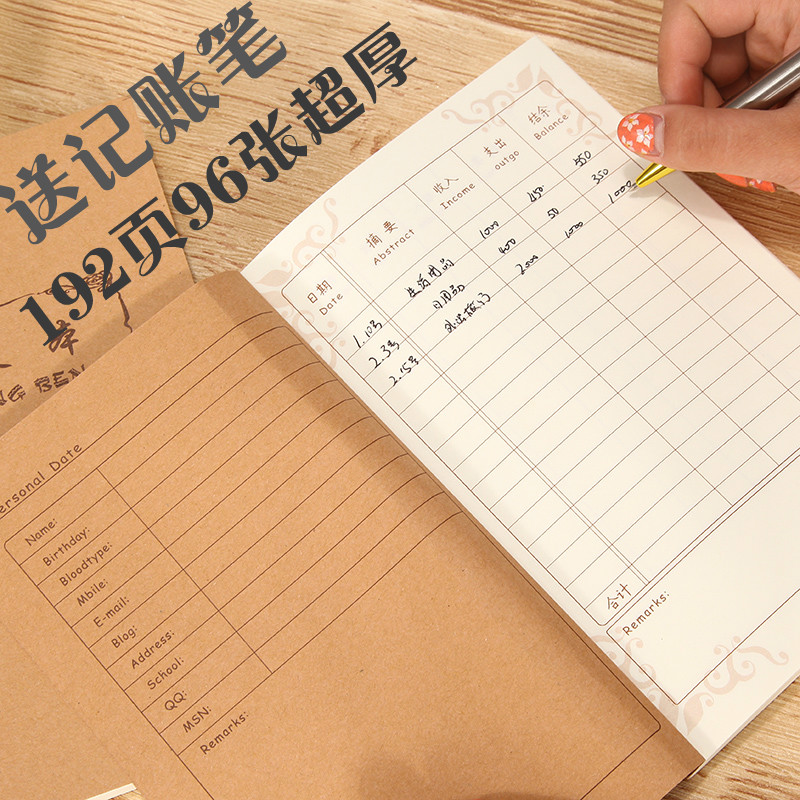 送记账笔
192页96张超厚
本
NG BEN
Personal Date
Name:
Birthday:
Bloodtype:
Mbile:
E-mail:
Blog:
Address:
School:
QQ:
MSN:
Remarks:
日期 摘要 收入 支出 结余
Date Abstract Income outgo Balance
1.10号 生活用品 1000 450 550
2.3号 日用品 400 50 350
2.15号 外出旅行 2000 1000 1000
合计
Remarks: